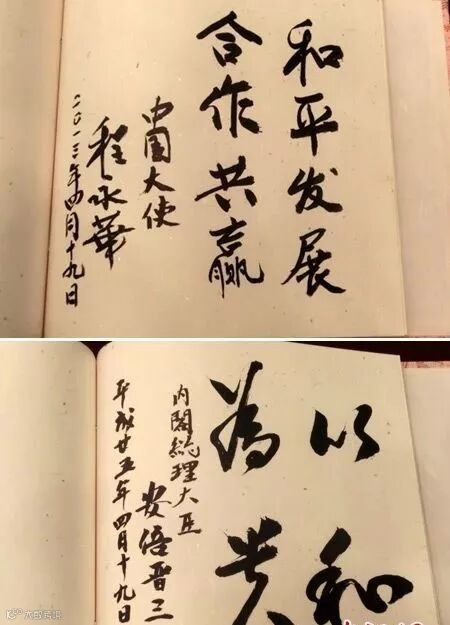 和平发展
合作共赢
中国大使
程永華
二〇一三年四月十九日
以和
為貴
内閣総理大臣
安倍晋三
平成廿五年四月十九日